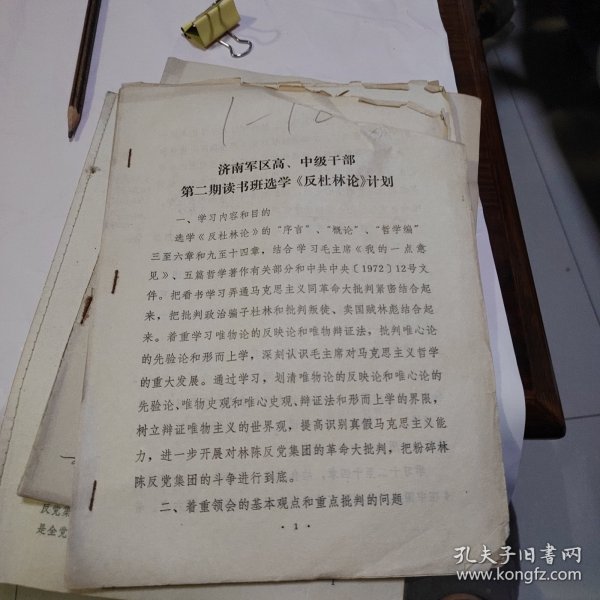 1-10
济南军区高、中级干部
第二期读书班选学《反杜林论》计划
一、学习内容和目的
选学《反杜林论》的“序言”、“概论”、“哲学编”
三至六章和九至十四章，结合学习毛主席《我的一点意
见》、五篇哲学著作有关部分和中共中央〔1972〕12号文
件。把看书学习弄通马克思主义同革命大批判紧密结合起
来，把批判政治骗子杜林和批判叛徒、卖国贼林彪结合起
来。着重学习唯物论的反映论和唯物辩证法，批判唯心论
的先验论和形而上学，深刻认识毛主席对马克思主义哲学
的重大发展。通过学习，划清唯物论的反映论和唯心论的
先验论、唯物史观和唯心史观、辩证法和形而上学的界限，
树立辩证唯物主义的世界观，提高识别真假马克思主义能
力，进一步开展对林陈反党集团的革命大批判，把粉碎林
陈反党集团的斗争进行到底。
二、着重领会的基本观点和重点批判的问题
·1·
反党集
是全党
孔夫子旧书网
www.kongfz.com